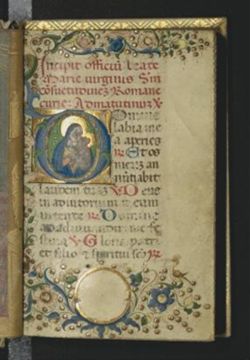 Incipit officiũ beate
Marie virginis S̃m
cõsuetudinez Romane
curie. Ad matutinuz ℣
Domine
labia me
a aperies
℟ Et os
meuz an
nũtiabit
laudem tuaz ℣ Deus
in adiutorium m eum
intende ℟ Domine
ad adiuvandum me fe
stina ℣ Gloria patri
et filio et spiritui scõ ℟